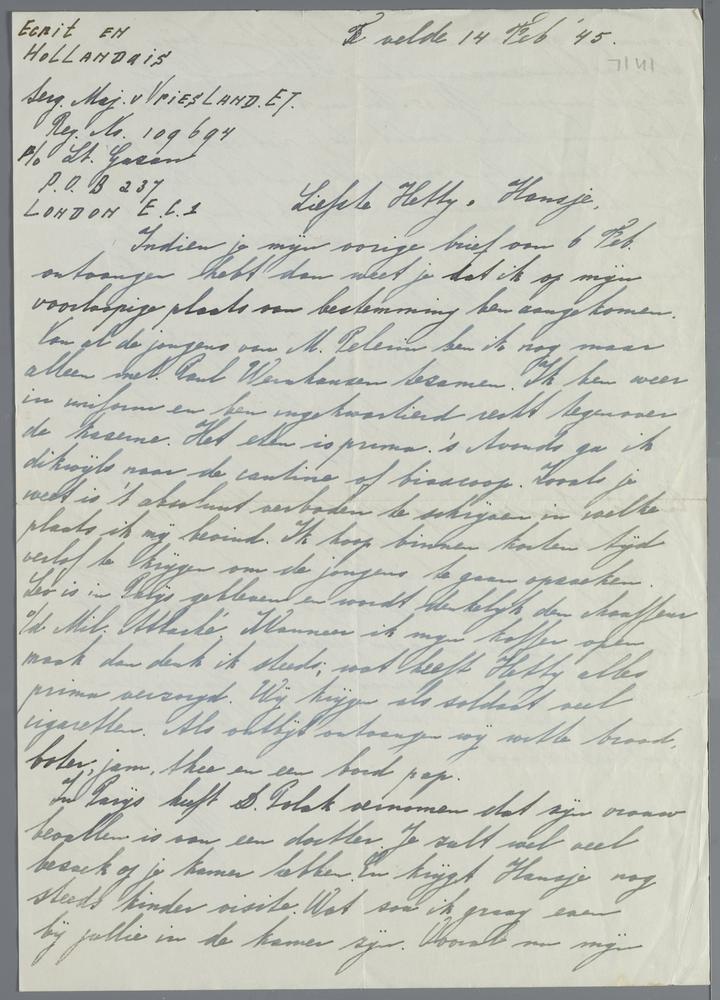 Ecrit en
Hollandais
Te velde 14 Feb '45.
Serg. Maj. v Vriesland. E.J.
Reg. No. 109694
p/o Lt. Gasan
P.O.B 237
London E.C.1
Liefste Hetty, Hansje,
Indien je mijn vorige brief van 6 Feb.
ontvangen hebt dan weet je dat ik op mijn
voorloopige plaats van bestemming ben aangekomen.
Van al de jongens van M. Pelerin ben ik nog maar
alleen met Paul Wernhausen tezamen. Ik ben weer
in uniform en ben ingekwartierd recht tegenover
de kazerne. Het eten is prima. 's Avonds ga ik
dikwijls naar de cantine of bioscoop. Zooals je
weet is 't absoluut verboden te schrijven in welke
plaats ik mij bevind. Ik hoop binnen korten tijd
verlof te krijgen om de jongens te gaan opzoeken.
Leo is in Parijs gebleven en wordt denkelijk den chauffeur
v/d Mil. Attaché. Wanneer ik mijn koffer open
maak dan denk ik steeds; wat heeft Hetty alles
prima verzorgd. Wij krijgen als soldaat veel
cigaretten. Als ontbijt ontvangen wij witte brood,
boter, jam, thee en een bord pap.
In Parijs heeft S. Polak vernomen dat zijn vrouw
bevallen is van een dochter. Je zult wel veel
bezoek op je kamer hebben. En krijgt Hansje nog
steeds kinder visite. Wat zou ik graag even
bij jullie in de kamer zijn. Vooral nu mijn